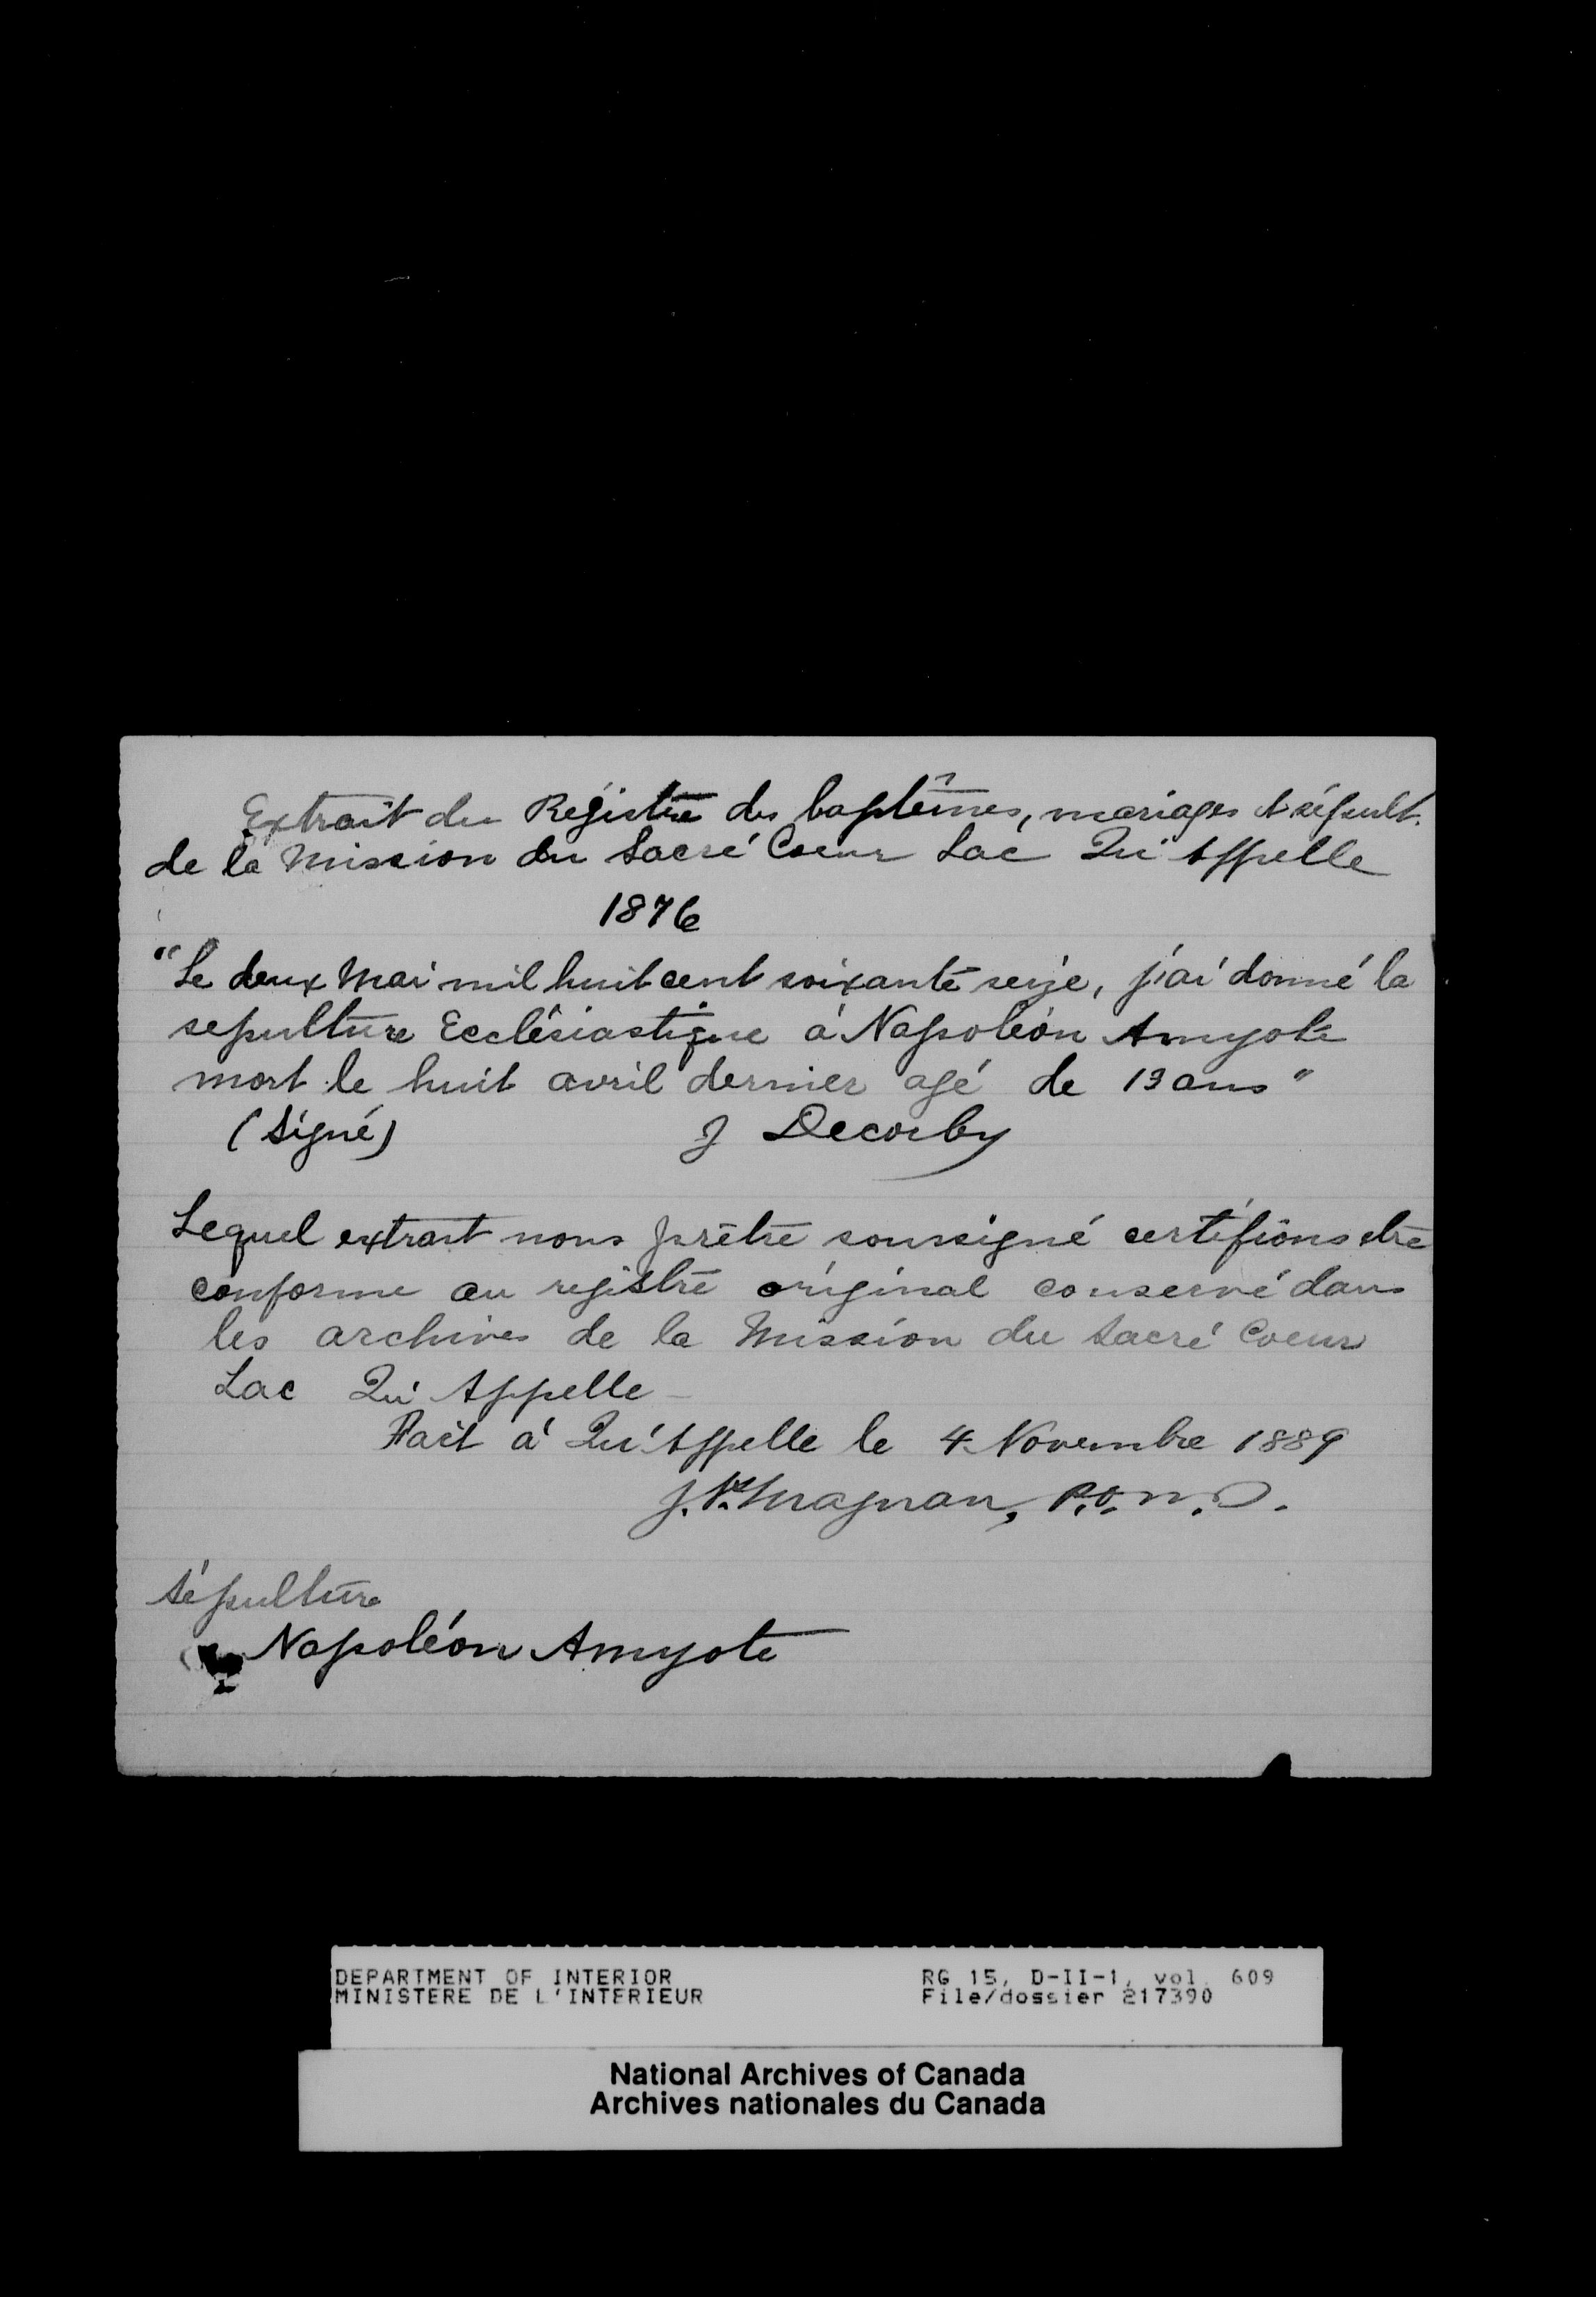 Extrait du Registre des baptêmes, mariages et sépult.
de la Mission du Sacré Coeur Lac Qu'Appelle
1876
"Le deux Mai mil huit cent soixante seize, j'ai donné la
sepulture Ecclésiastique à Napoléon Amyote
mort le huit avril dernier agé de 13 ans"
(Signé) J Decorby
Lequel extrait nous prêtre soussigné certifions etre
conforme au registre original conservé dans
les archives de la Mission du Sacré Coeur
Lac Qu'Appelle
Fait à Qu'Appelle le 4 Novembre 1889
J. Magnan, P.O.M.I.
Sépulture
Napoléon Amyote
DEPARTMENT OF INTERIOR RG 15, D-II-1, vol. 609
MINISTERE DE L'INTERIEUR File/dossier 217390
National Archives of Canada
Archives nationales du Canada